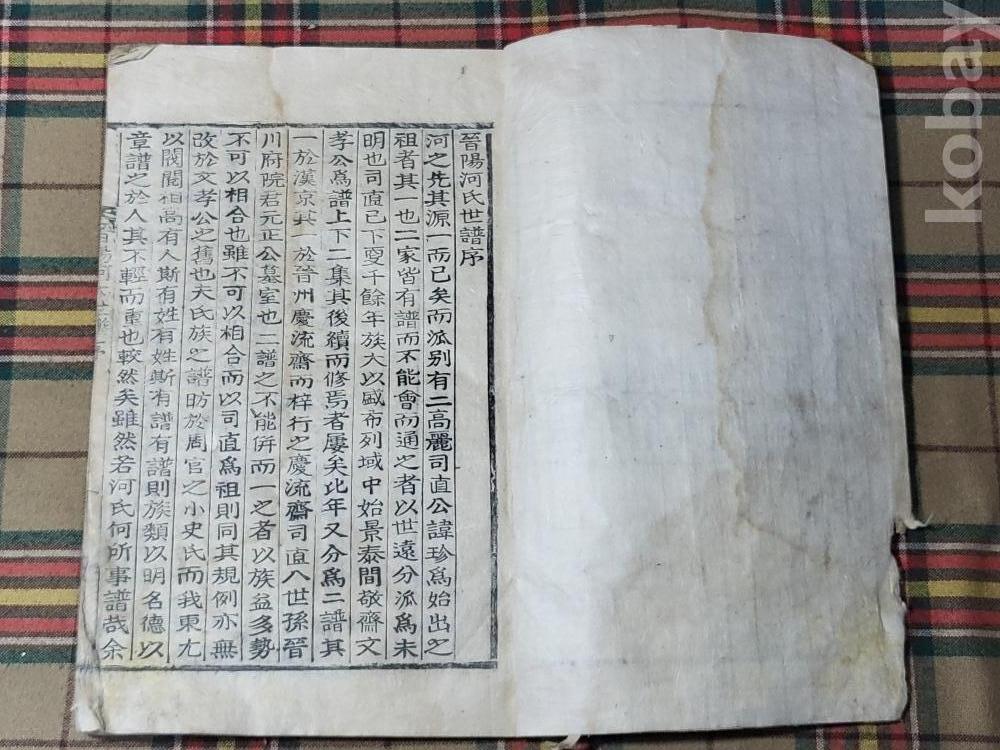 晉陽河氏世譜序
河之先其源一而已矣而派别有二高麗司直公諱珍爲始出之
祖者其一也二家皆有譜而不能會而通之者以世遠分派爲未
明也司直已下夐千餘年族大以盛布列域中始景泰間敬齋文
孝公爲譜上下二集其後續而修焉者屢矣比年又分爲二譜其
一於漢京其一於晉州慶流齋而梓行之慶流齋司直八世孫晉
川府院君元正公墓室也二譜之不能併而一之者以族益多勢
不可以相合也雖不可以相合而以司直爲祖則同其規例亦無
改於文孝公之舊也夫氏族之譜昉於周官之小史氏而我東尢
以閥閱相高有人斯有姓有姓斯有譜有譜則族類以明名德以
章譜之於人其不輕而重也較然矣雖然若河氏何所事譜哉余
kobay